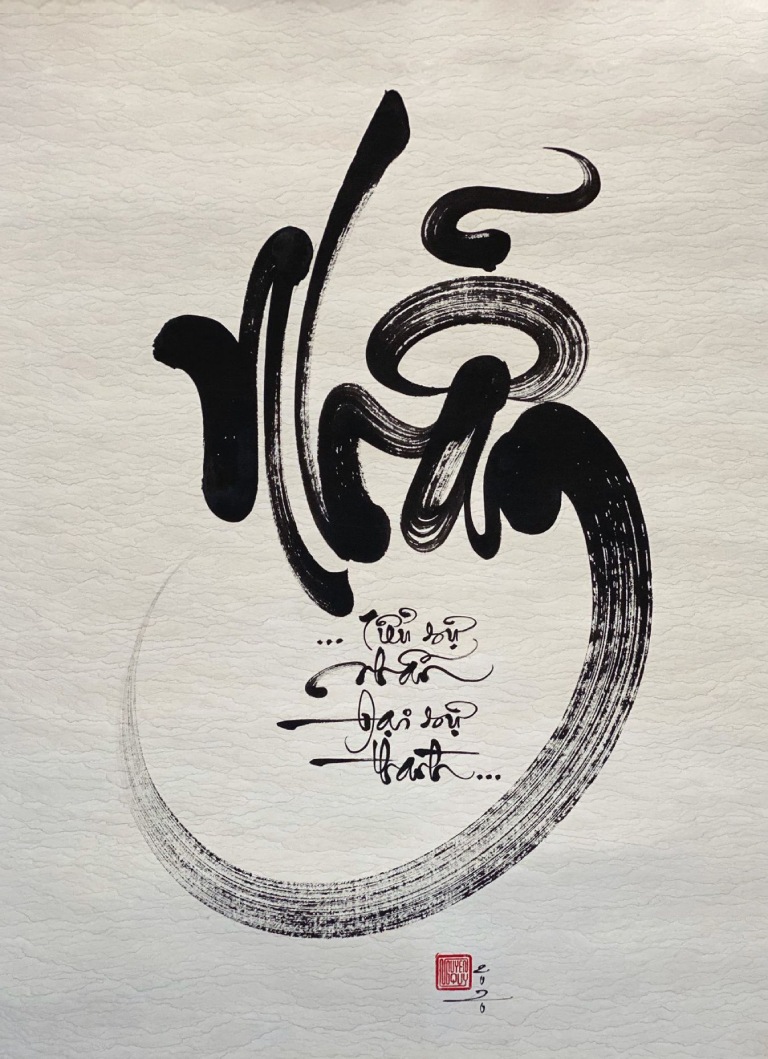 Nhẫn
... Tiểu sự
nhẫn
Đại sự
thành...
NGUYEN
QUY
2020